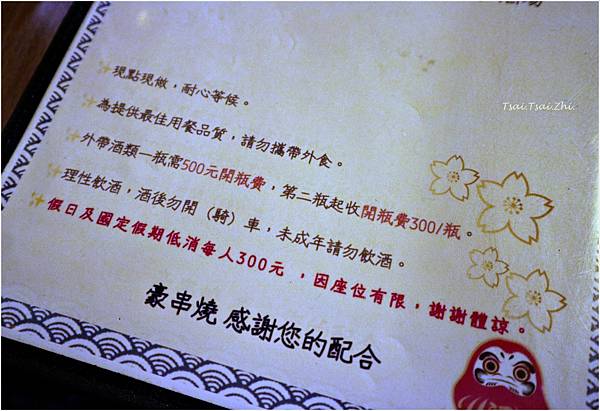 現點現做，耐心等候。
為提供最佳用餐品質，請勿攜帶外食。
外帶酒類一瓶需500元開瓶費，第二瓶起收開瓶費300/瓶。
理性飲酒，酒後勿開（騎）車，未成年請勿飲酒。
假日及國定假期低消每人300元，因座位有限，謝謝體諒。
豪串燒 感謝您的配合
Tsai.Tsai.Zhi.